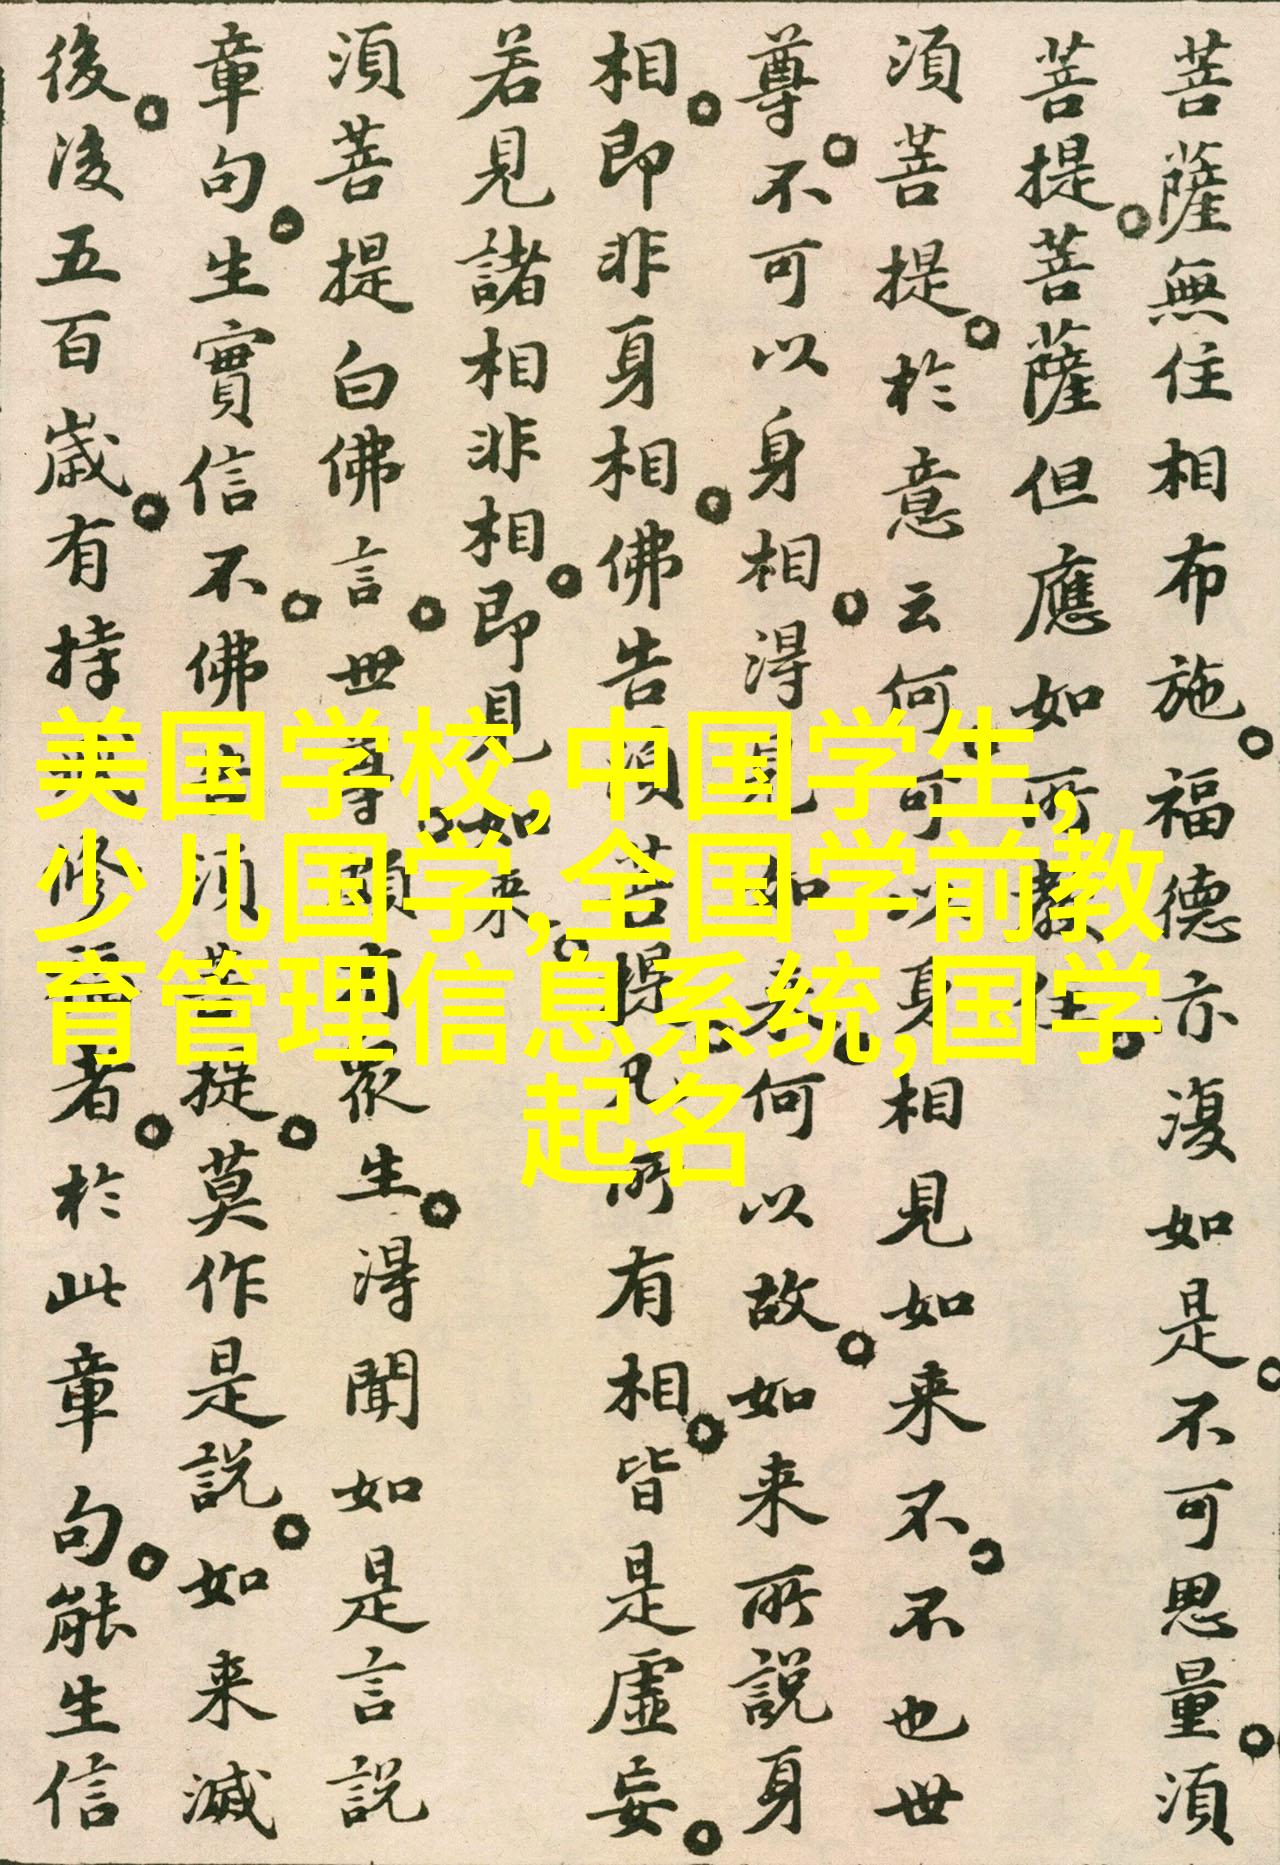 菩薩無住相布施。福德亦復如是。不可思量。須
菩提。菩薩但應如所教住。
須菩提。於意云何。可以身相見如来不。不也世
尊。不可以身相。得見如来。何以故。如来所説身
相。即非身相。佛告須菩提。凡所有相。皆是虛妄。
若見諸相非相。即見如来。
須菩提白佛言。世尊。頗有衆生。得聞如是言説
章句。生實信不。佛告須菩提。莫作是説。如来滅
後。後五百歲。有持戒修福者。於此章句。能生信
美国学校,中国学生,
少儿国学,全国学前教
育管理信息系统,国学
起名